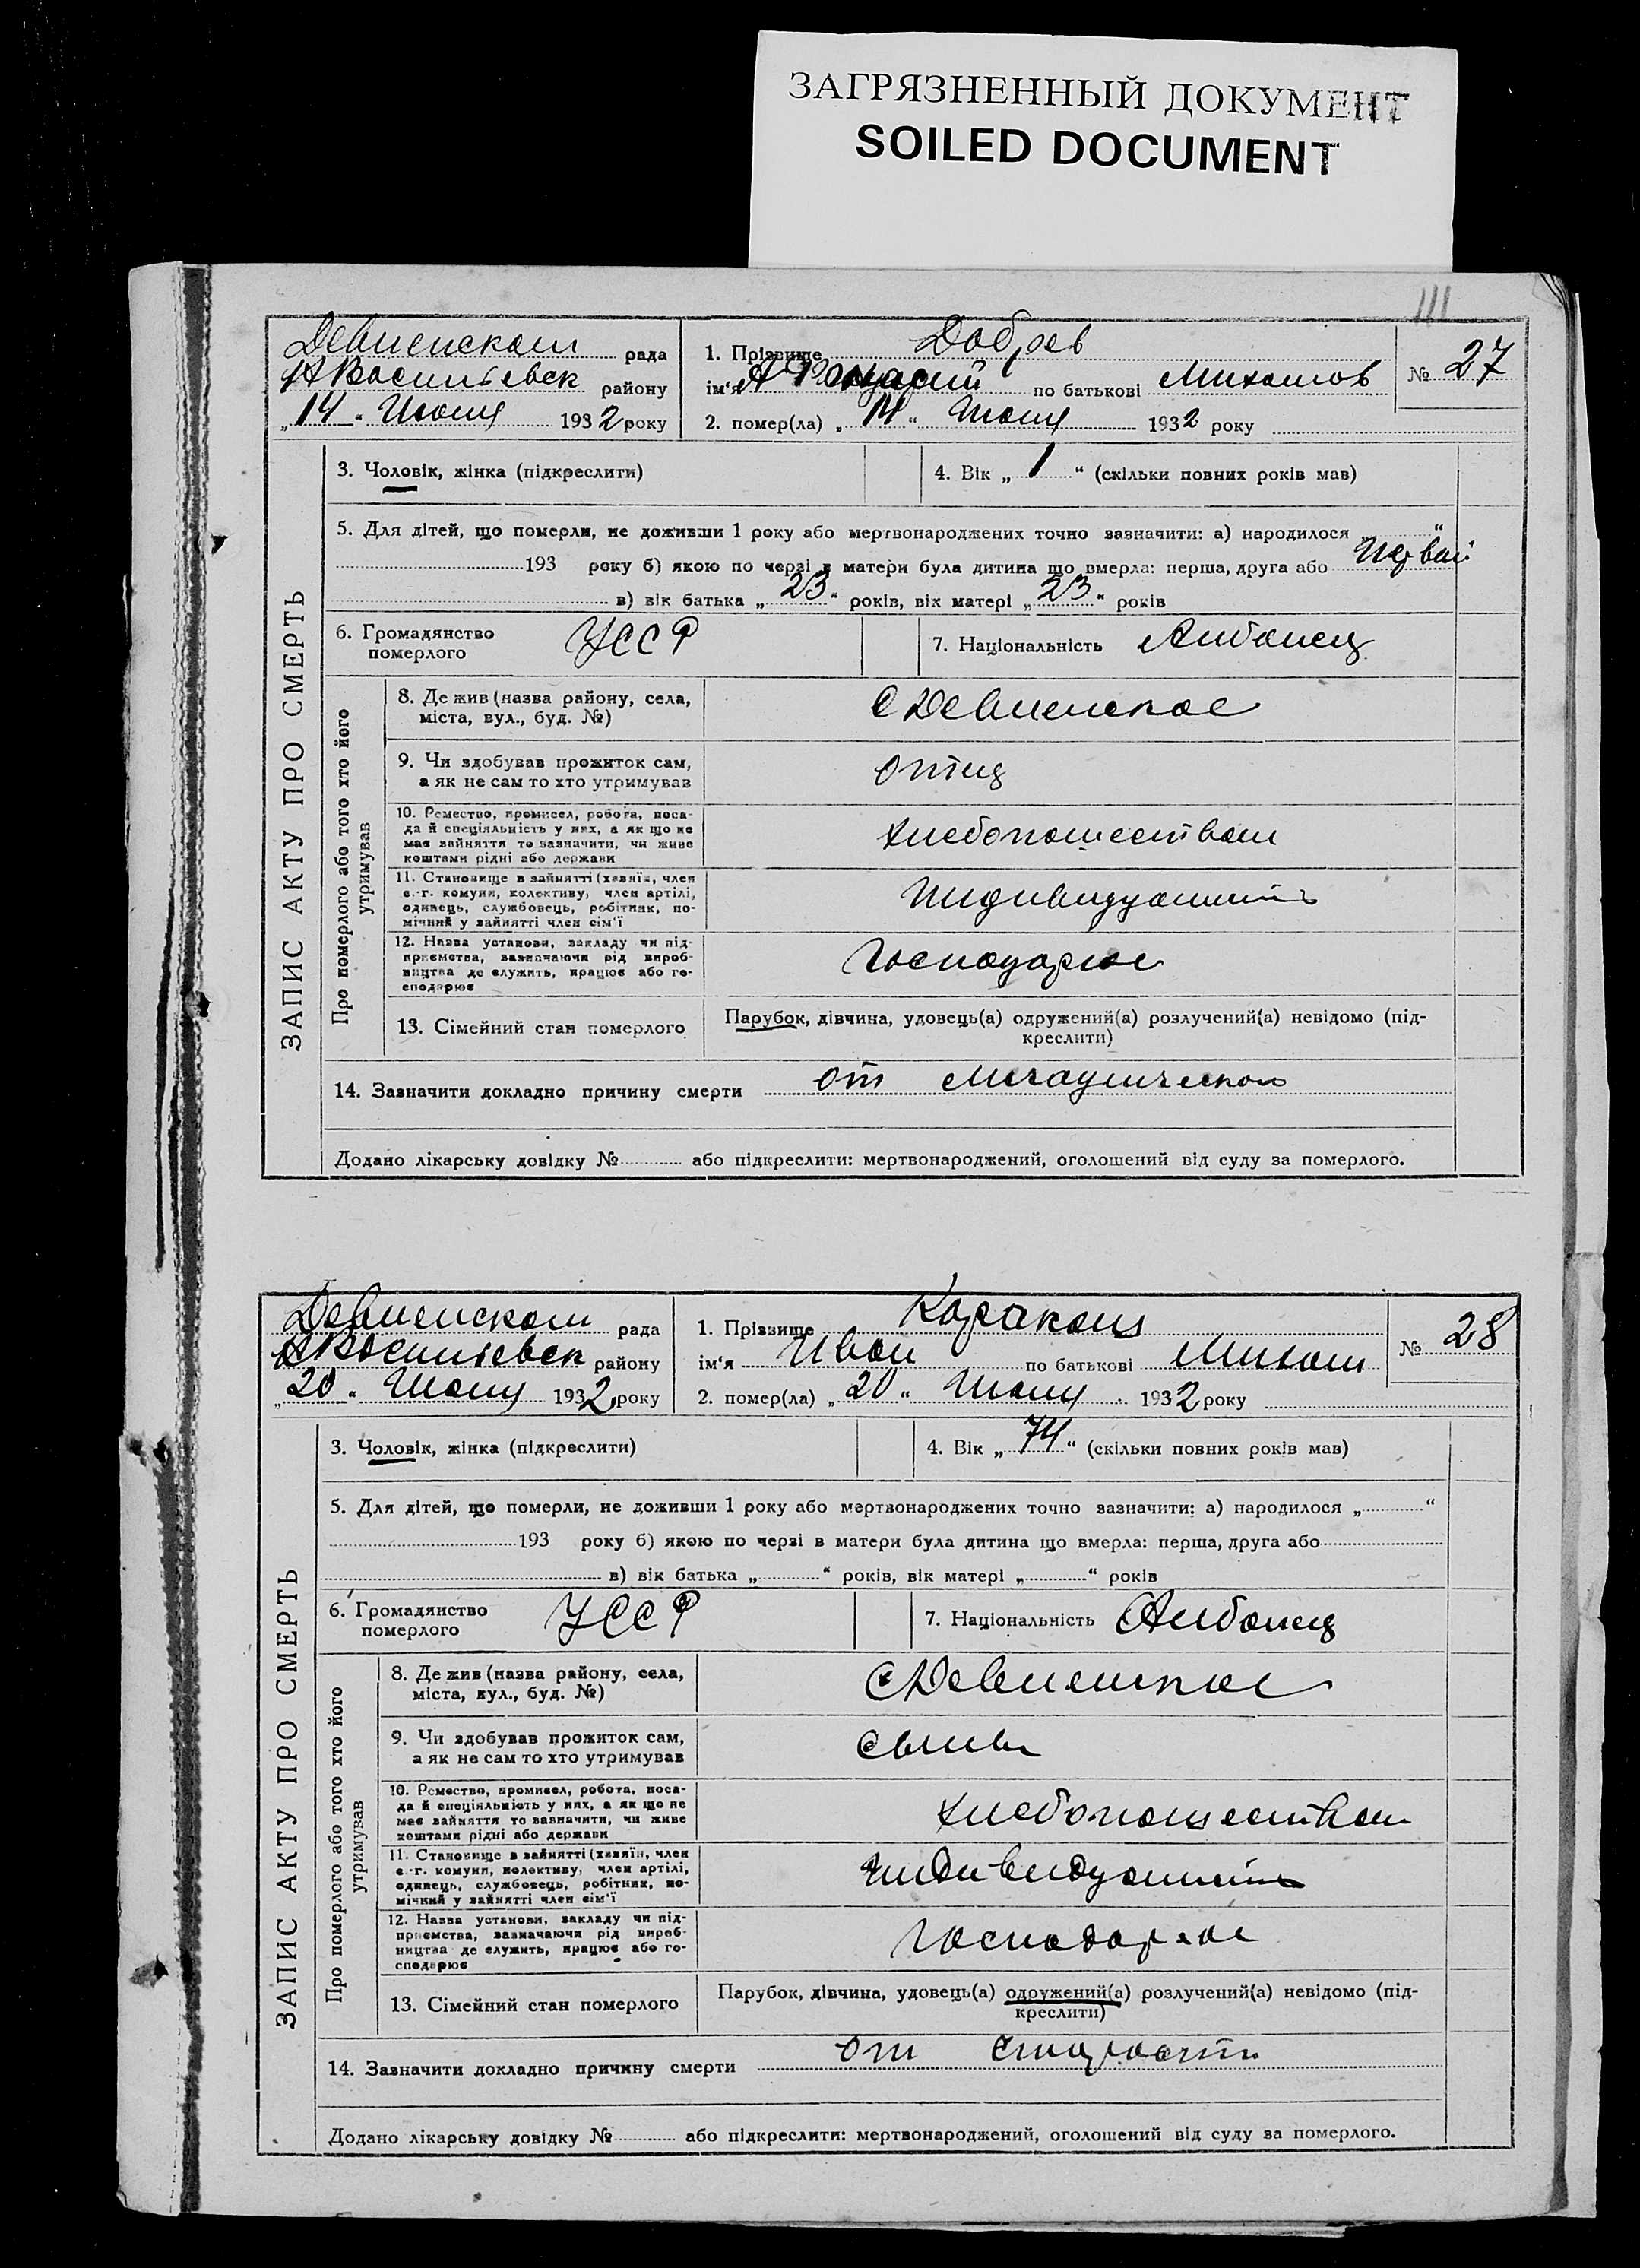 ЗАГРЯЗНЕННЫЙ ДОКУМЕНТ
SOILED DOCUMENT
111
Девненском рада
АВасильевск району
„14„ Июня 1932 року
1. Прізвище Добрев
ім'я по батькові Михаилов
№ 27
2. помер(ла) „14“ Июня 1932 року
ЗАПИС АКТУ ПРО СМЕРТЬ
3. Чоловік, жінка (підкреслити)
4. Вік „1“ (скільки повних років мав)
5. Для дітей, що померли, не доживши 1 року або мертвонароджених точно зазначити: а) народилося „ “
193 року б) якою по черзі в матери була дитина що вмерла: перша, друга або Первый
в) вік батька „23“ років, вік матері „23“ років
6. Громадянство померлого УССР
7. Національність Албанец
Про померлого або того хто його утримував
8. Де жив (назва району, села,
міста, вул., буд. №)
С Девненское
9. Чи здобував прожиток сам,
а як не сам то хто утримував
отец
10. Ремество, промисел, робота, поса-
да й специяльність у них, а як що не
має зайняття то зазначити, чи живе
коштами рідні або держави
хлебопашеством
11. Становище в зайнятті (хазяїн, член
с.-г. комуни, колективу, член артілі,
одинець, службовець, робітник, по-
мічний у зайнятті член сім'ї
12. Назва установи, закладу чи під-
приємства, зазначаючи рід вироб-
ництва де служить, працює або го-
сподарює
13. Сімейний стан померлого
Парубок, дівчина, удовець(а) одружений(а) розлучений(а) невідомо (під-
креслити)
14. Зазначити докладно причину смерти от
Додано лікарську довідку № або підкреслити: мертвонароджений, оголошений від суду за померлого.
Девненском рада
АВасильевск району
„20„ Июня 1932 року
1. Прізвище Каракаш
ім'я Иван по батькові Михаил
№ 28
2. помер(ла) „20“ Июня 1932 року
ЗАПИС АКТУ ПРО СМЕРТЬ
3. Чоловік, жінка (підкреслити)
4. Вік „74“ (скільки повних років мав)
5. Для дітей, що померли, не доживши 1 року або мертвонароджених точно зазначити: а) народилося „ “
193 року б) якою по черзі в матери була дитина що вмерла: перша, друга або
в) вік батька „ “ років, вік матері „ “ років
6. Громадянство померлого УССР
7. Національність Албанец
Про померлого або того хто його утримував
8. Де жив (назва району, села,
міста, вул., буд. №)
С Девненское
9. Чи здобував прожиток сам,
а як не сам то хто утримував
10. Ремество, промисел, робота, поса-
да й специяльність у них, а як що не
має зайняття то зазначити, чи живе
коштами рідні або держави
хлебопашеством
11. Становище в зайнятті (хазяїн, член
с.-г. комуни, колективу, член артілі,
одинець, службовець, робітник, по-
мічний у зайнятті член сім'ї
12. Назва установи, закладу чи під-
приємства, зазначаючи рід вироб-
ництва де служить, працює або го-
сподарює
13. Сімейний стан померлого
Парубок, дівчина, удовець(а) одружений(а) розлучений(а) невідомо (під-
креслити)
14. Зазначити докладно причину смерти от старости
Додано лікарську довідку № або підкреслити: мертвонароджений, оголошений від суду за померлого.